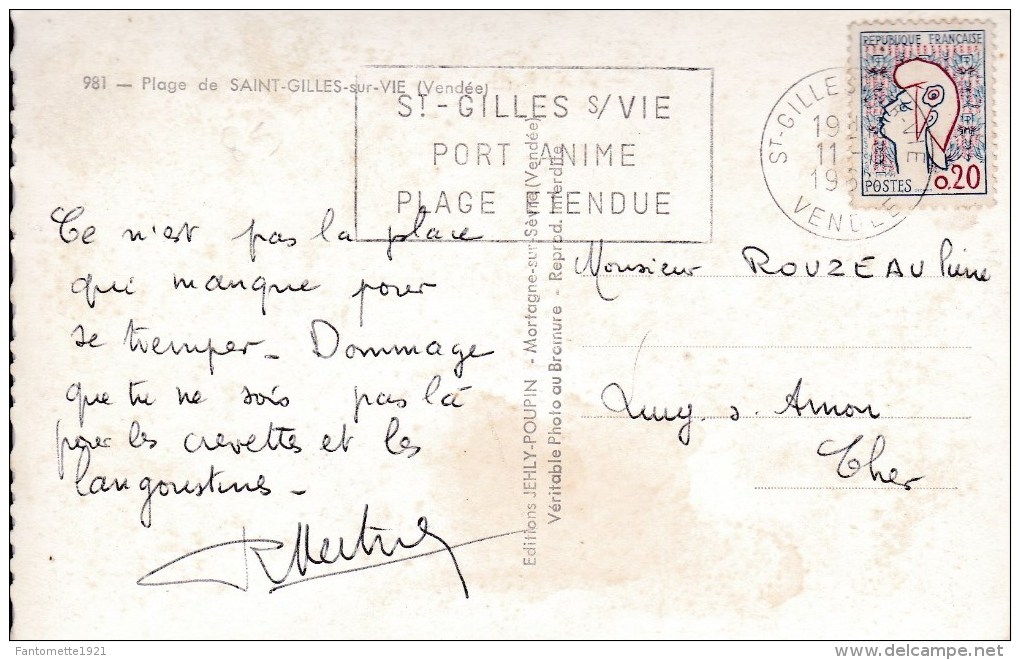 981 — Plage de SAINT-GILLES-sur-VIE (Vendée)
ST-GILLES S/VIE
PORT ANIME
PLAGE ETENDUE
ST-GILLES
VIE
19
11
196
VENDEE
REPUBLIQUE FRANÇAISE
POSTES
0.20
Ce n'est pas la place
qui manque pour
se tremper - Dommage
que tu ne sois pas là
pour les crevettes et les
langoustines -
Editions JEHLY-POUPIN - Mortagne-sur-Sèvre (Vendée)
Véritable Photo au Bromure - Reprod. interdite
Monsieur ROUZEAU Pierre
Lury s. Arnon
Cher
Fantomette1921
delcampe.net